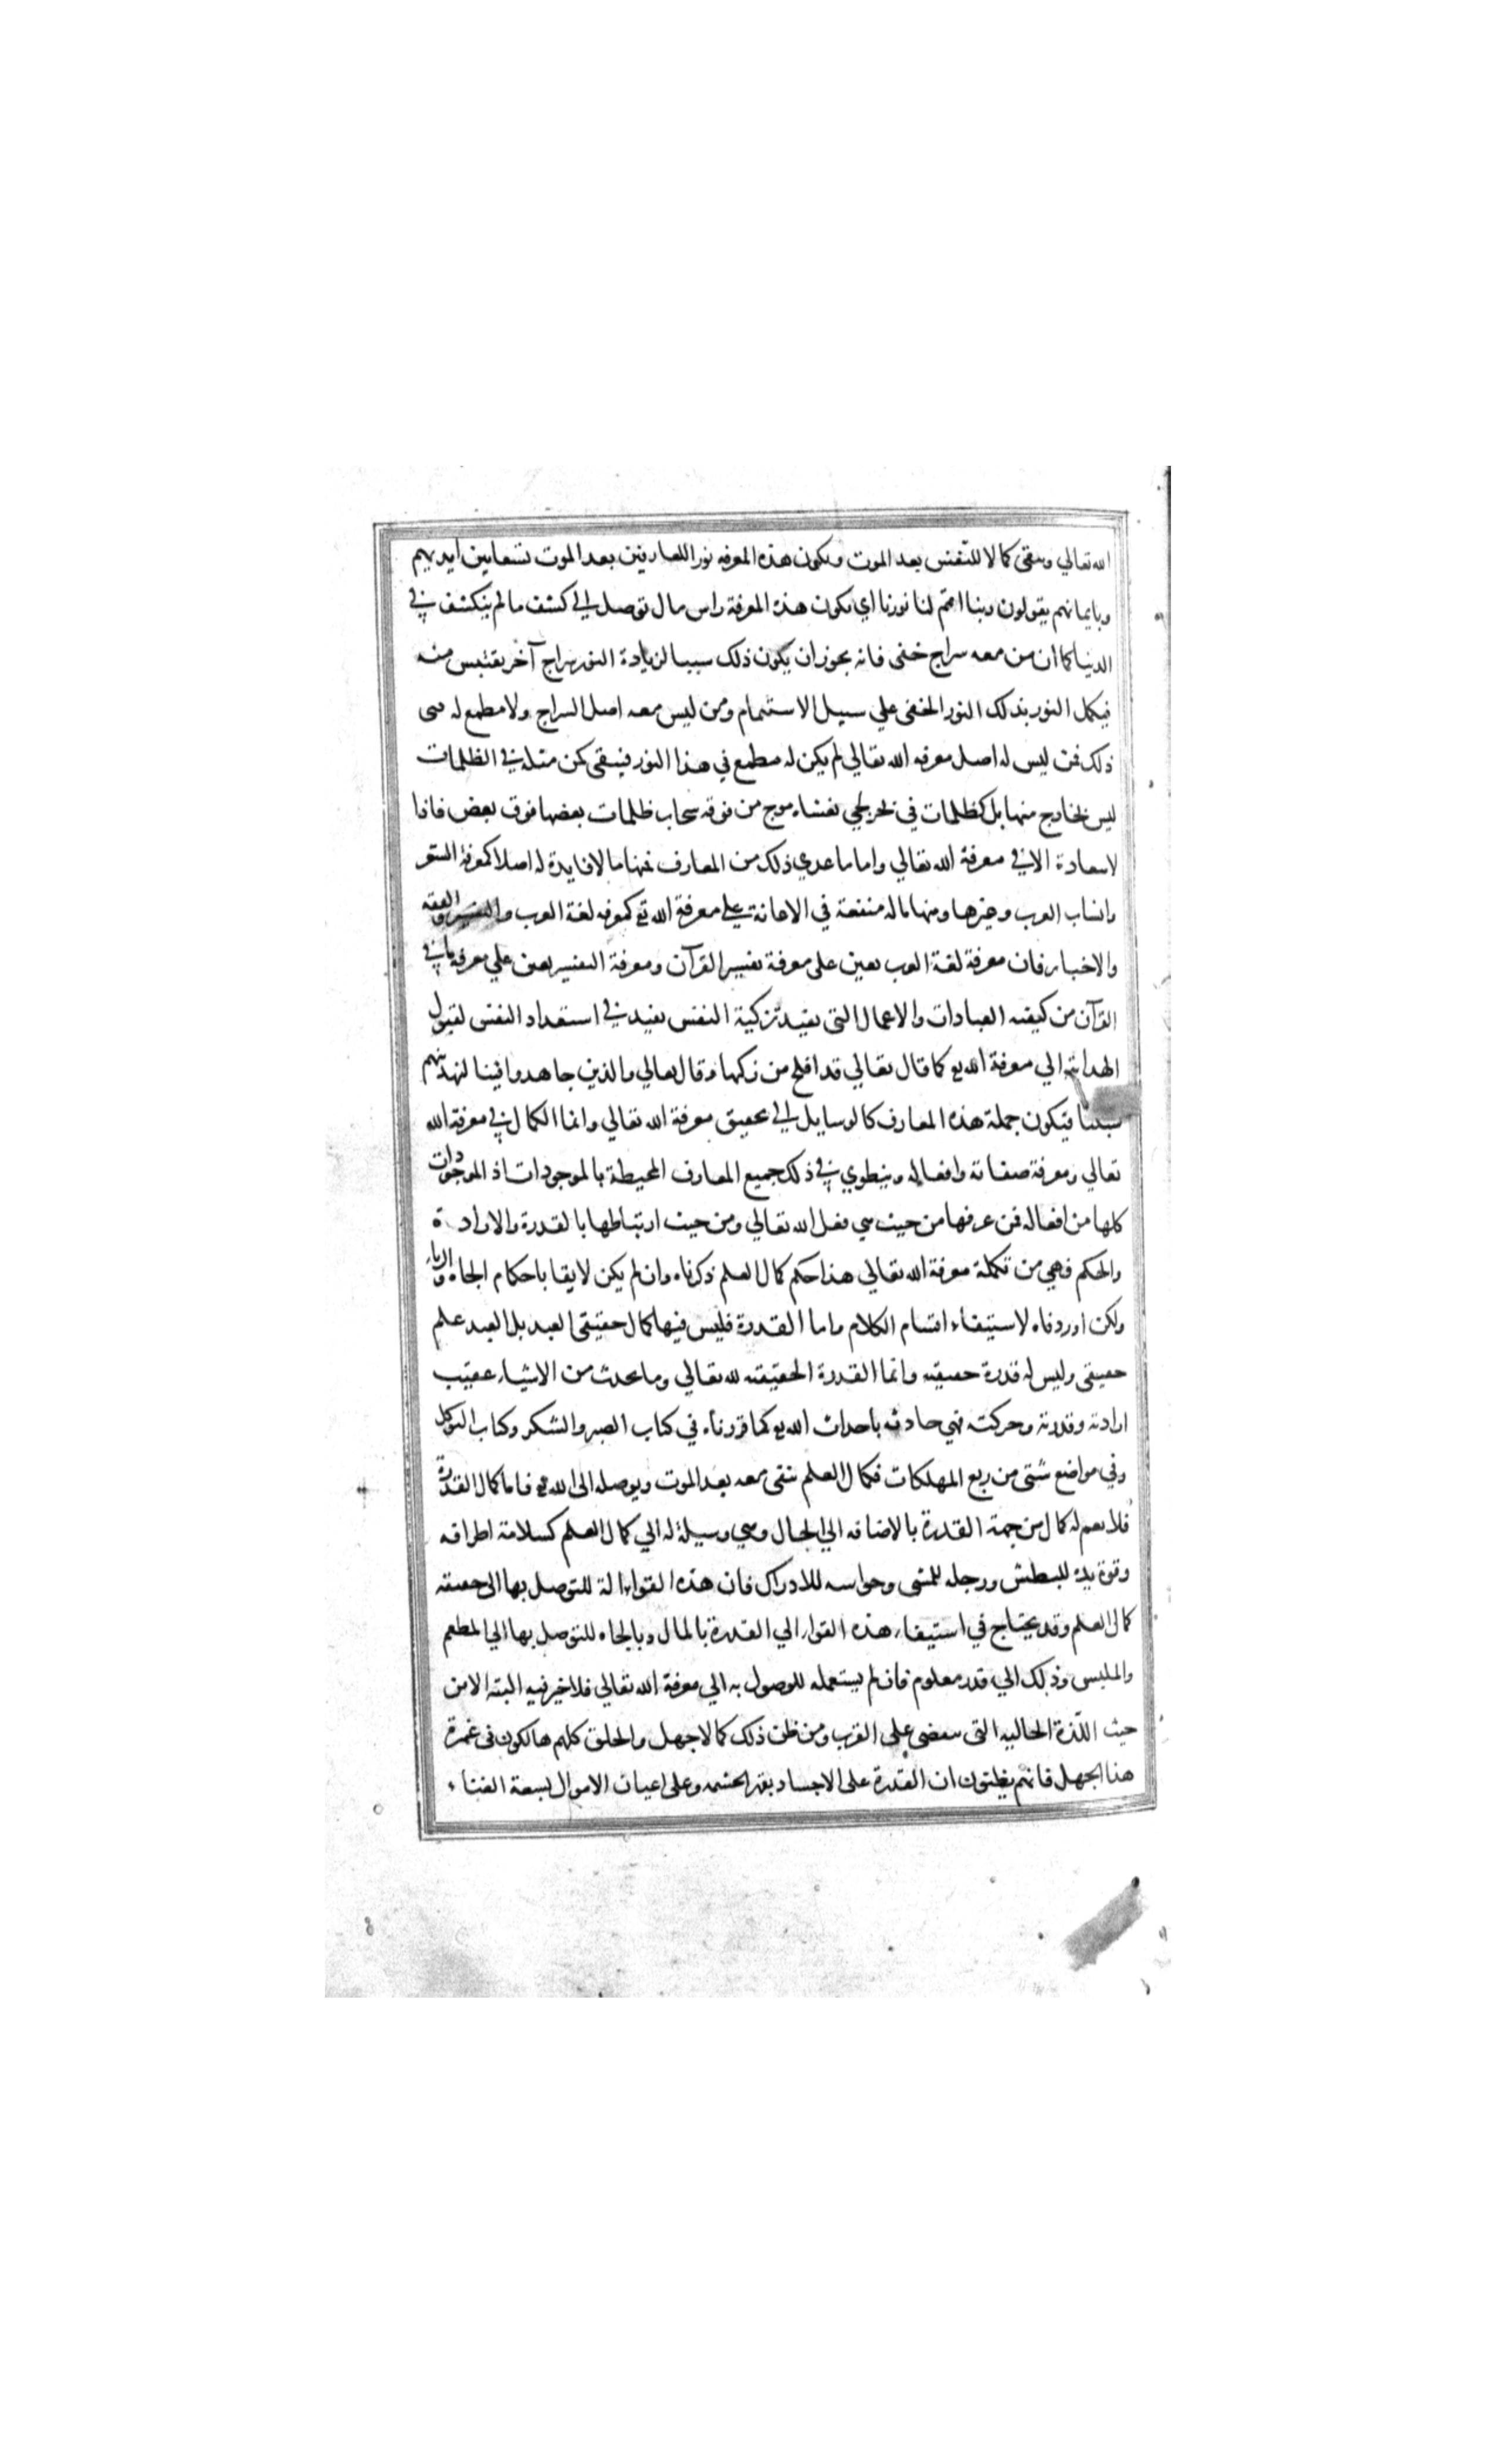 الله تعالي ويبقى كمالا للنفس بعد الموت ويكون هذه المعرفه نورا للعارفين بعد الموت تسعا بين ايديهم
وبايمانهم يقولون ربنا اتمم لنا نورنا اي يكون هذه المعرفة راس مال توصل الي كشف ما لم ينكشف في
الدنيا كما ان من معه سراج خفي فانه يجوز ان يكون ذلك سببا لزيادة النور بسراج آخر يقتبس منه
فيكمل النور بذلك النور الخفي علي سبيل الاستتمام ومن ليس معه اصل السراج ولا مطمع له في
ذلك فمن ليس له اصل معرفه الله تعالي لم يكن له مطمع في هذا النور فيبقى كمن مثله في الظلمات
ليس بخارج منها بل كظلمات في بحر لجي يغشاه موج من فوقه سحاب ظلمات بعضها فوق بعض فاذا
لا سعادة الا في معرفة الله تعالي واما ما عدي ذلك من المعارف فمنها ما لا فايدة له اصلا كمعرفة الشعر
وانساب العرب وغيرها ومنها ما له منفعة في الاعانة علي معرفة الله تع كمعرفه لغة العرب والتفسير والفقه
والاخبار فان معرفة لغة العرب يعين على معرفة تفسير القرآن ومعرفة التفسير يعين علي معرفة ما في
القرآن من كيفيه العبادات والاعمال التي يفيد تزكية النفس يفيد في استعداد النفس لقبول
الهداية الي معرفة الله تع كما قال تعالي قد افلح من زكها وقال تعالي والذين جاهدوا فينا لنهدينهم
سبلنا فيكون جملة هذه المعارف كالوسايل الي تحقيق معرفة الله تعالي وانما الكمال في معرفة الله
تعالي ومعرفة صفاته وافعاله وينطوي في ذلك جميع المعارف المحيطة بالموجودات اذ الموجودات
كلها من افعاله فمن عرفها من حيث هي فعل الله تعالي ومن حيث ارتباطها بالقدرة والارادة
والحكم فهي من تكملة معرفة الله تعالي هذا حكم كمال العلم ذكرناه وان لم يكن لايقا باحكام الجاه والرياء
ولكن اوردناه لاستيفاء اقسام الكلام واما القدرة فليس فيها كمال حقيقي للعبد بل للعبد علم
حقيقي وليس له قدرة حقيقيه وانما القدرة الحقيقيه لله تعالي وما يحدث من الاشياء عقيب
ارادته وقدرته وحركته فهي حادثه باحداث الله تع كما قررناه في كتاب الصبر والشكر وكتاب التوكل
وفي مواضع شتى من ربع المهلكات فكمال العلم يبقى معه بعد الموت ويوصله الى الله تع فاما كمال القدرة
فلا نعم له كمال من جهة القدرة بالاضافه الي الحال وهي وسيلة له الي كمال العلم كسلامة اطرافه
وقوة يده للبطش ورجله للمشي وحواسه للادراك فان هذه القواء الة للتوصل بها الى حقيقه
كمال العلم وقد يحتاج في استيفاء هذه القواء الي القدرة بالمال وبالجاه للتوصل بها الي المطعم
والملبس وذلك الي قدر معلوم فان لم يستعمله للوصول به الي معرفة الله تعالي فلا خير فيه البتة الا من
حيث اللذة الحاليه التي سقضى على القرب ومن ظن ذلك كمالا جهل والخلق كلهم هالكون في غمرة
هذا الجهل فانهم يظنون ان القدرة على الاجساد بقهر الحشمه وعلى اعيان الاموال بسعة الغناء